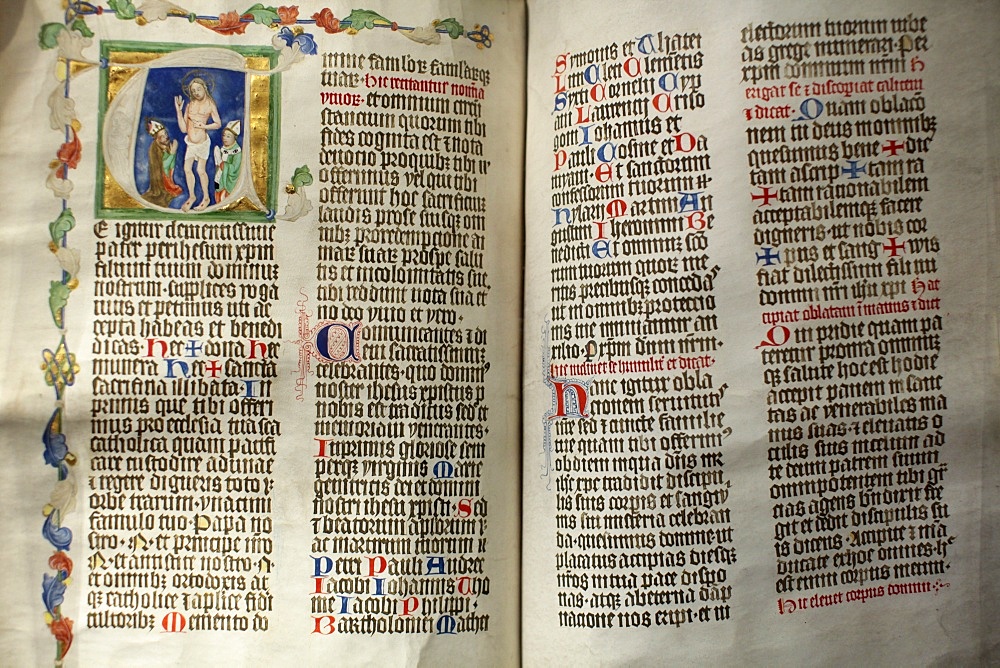 E igitur clementissime
pater per ihesum xpm
filium tuum dominum
nostrum · supplices roga
mus et petimus uti ac
cepta habeas et benedi
dicas · Hec + dona hec
munera Hec + sancta
sacrificia illibata · In
primis que tibi offeri
mus pro ecclesia tua sca
catholica quam pacifi
care custodire adunare
et regere digneris toto
orbe terrarum · una cum
famulo tuo · Papa no
stro · N · et principe nro
N · et antistite nostro · N ·
et omnibz ortodoxis at
qz catholice et aplice fidi
cultoribz Memento do
mine famlor famlarqz
tuar · hic recitantur nomina
vivor · et omnium circu
stancium quorum tibi
fides cognita est et nota
devotio pro quibz tibi
offerimus vel qui tibi
offerunt hoc sacrificium
laudis pro se suisqz om
nibz pro redempcione ai
mar suar pro spe salu
tis et incolomitatis sue
tibi reddunt vota sua et
no deo vivo et vero ·
Comunicantes et di
em sacratissimum
celebrantes · quo dominus
noster ihesus xpistus p
nobis est traditus sed et
memoriam venerantes ·
Inprimis gloriose sem
perqz virginis Marie
genitricis dei et domini
nostri ihesu xpisti · Sed
et beatorum aplorum
ac martirum tuorum
Petri Pauli Andree
Iacobi Iohannis Tho
me Iacobi Philippi ·
Bartholomei Mathei
Simonis et Thatei
Lini Cleti Clementis
Sixti Corneli Cyp
ani Laurencii Criso
goni Iohannis et
Pauli Cosme et Da
miani · Et sanctorum
confessorum tuorum
Hylarii Martini Au
gustini Iheronimi Be
nedicti Et omnium sco
rum tuorum quor me
ritis precibusqz concedas
ut in omnibz protectio
nis tue muniamur au
xilio · Per xpm dnm nrm ·
hic inclinet se humilit et dicat ·
Hanc igitur obla
cionem servitutis
nre sed et cuncte familie
tue quam tibi offerimus
ob diem in qua dns nr
ihc xpc tradidit discipu
lis suis corpis et sangui
nis sui misteria celebran
da · quesumus domine ut
placatus accipias diesqz
nros in tua pace dispo
nas · atqz ab eterna dap
nacione nos eripi · et in
electorum tuorum iube
as grege numerari · Per
xpm dominum nrm h
erigat se et discoopiat calicem
et dicat · Quam oblacio
nem tu deus in omnibz
quesumus bene + dic
tam ascrip + tam ra
+ tam racionabilem
acceptabilemqz facere
digneris · ut nobis cor
+ pus et sang + wis
fiat dilectissimi filii tui
domini nri ihu xpi Hic
cipiat oblatam in manus et dicat
Qui pridie quam pa
teretur pro nra omnium
qz salute hoc est hodie
accepit panem in sanc
tas ac venerabiles ma
nus suas · et elevatis o
culis suis in celum ad
te deum patrem suum
omnipotentem tibi
cias agens bndixit fre
git et dedit discipulis su
is dicens · Accipite et
ducate ex hoc omnes ·
est enim corpus meum ·
Hic elevet corpus domini ·